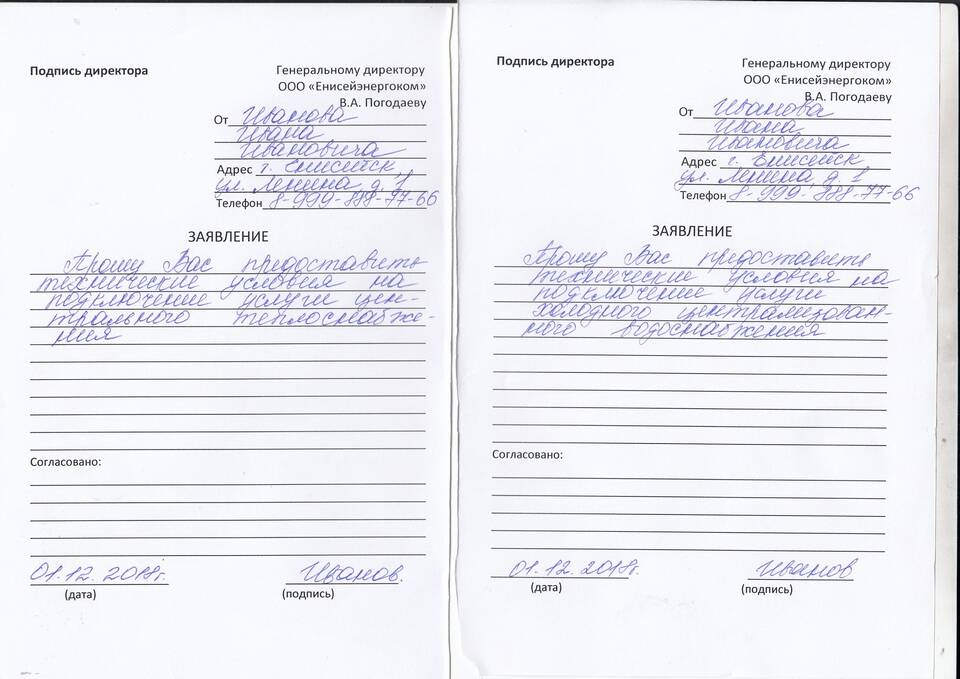 Подпись директора
Генеральному директору
ООО «Енисейэнергоком»
В.А. Погодаеву
От Иванова
Ивана
Ивановича
Адрес г. Енисейск,
ул. Ленина, д. 1
Телефон 8-999-888-77-66
ЗАЯВЛЕНИЕ
Прошу Вас предоставить
технические условия на
подключение услуги цен-
трального теплоснабже-
ния
Согласовано:
01.12.2018г. Иванов.
(дата) (подпись)
Подпись директора
Генеральному директору
ООО «Енисейэнергоком»
В.А. Погодаеву
От Иванова
Ивана
Ивановича
Адрес г. Енисейск
ул. Ленина, д. 1
Телефон 8-999-888-77-66
ЗАЯВЛЕНИЕ
Прошу Вас предоставить
технические условия на
подключение услуги
холодного централизован-
ного водоснабжения
Согласовано:
01.12.2018г. Иванов
(дата) (подпись)